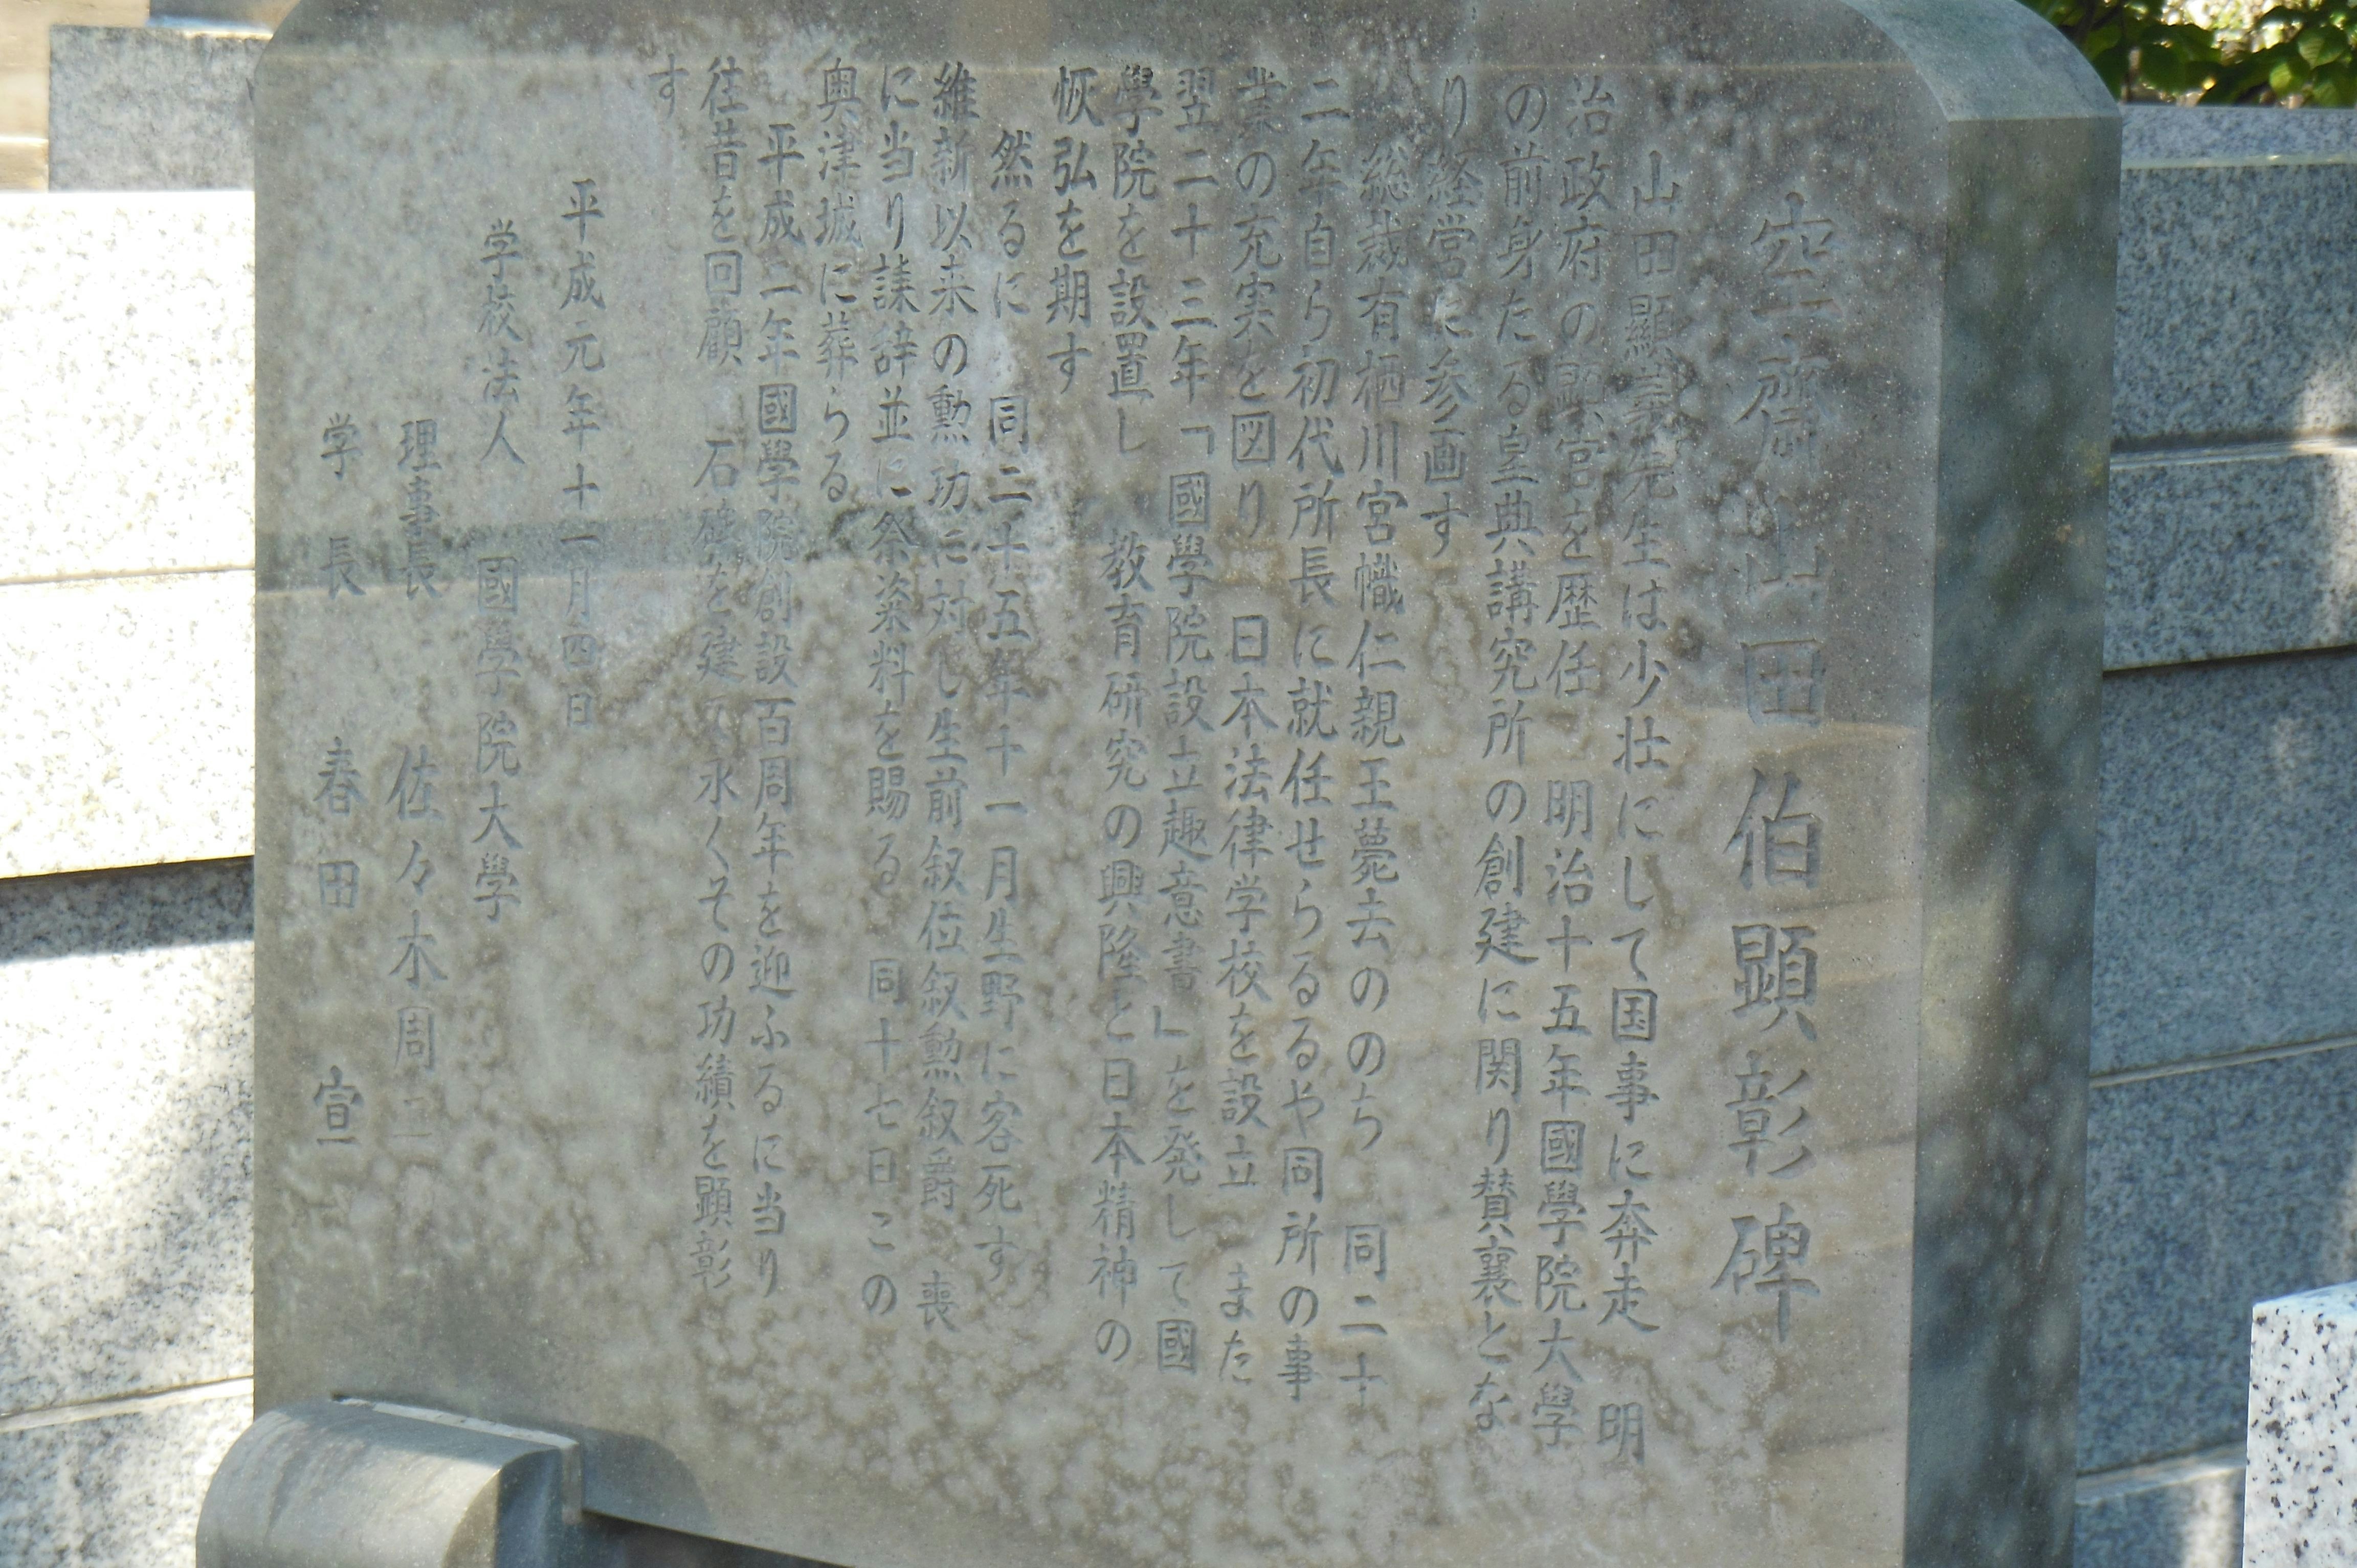 空齋山田伯顕彰碑
山田顯義先生は少壮にして国事に奔走 明
治政府の顕官を歴任 明治十五年國學院大學
の前身たる皇典講究所の創建に関り賛襄とな
り経営に参画す
総裁有栖川宮幟仁親王薨去ののち 同二十
二年自ら初代所長に就任せらるるや同所の事
業の充実を図り 日本法律学校を設立 また
翌二十三年「國學院設立趣意書」を発して國
學院を設置し 教育研究の興隆と日本精神の
恢弘を期す
然るに 同二十五年十一月生野に客死す
維新以来の勲功に対し生前叙位叙勲叙爵 喪
に当り誄辞並に祭粢料を賜る 同十七日この
奥津城に葬らる
平成二年國學院創設百周年を迎ふるに当り
往昔を回顧 石碑を建て永くその功績を顕彰
す
平成元年十一月四日
学校法人 國學院大學
理事長 佐々木周二
学長 春田宣